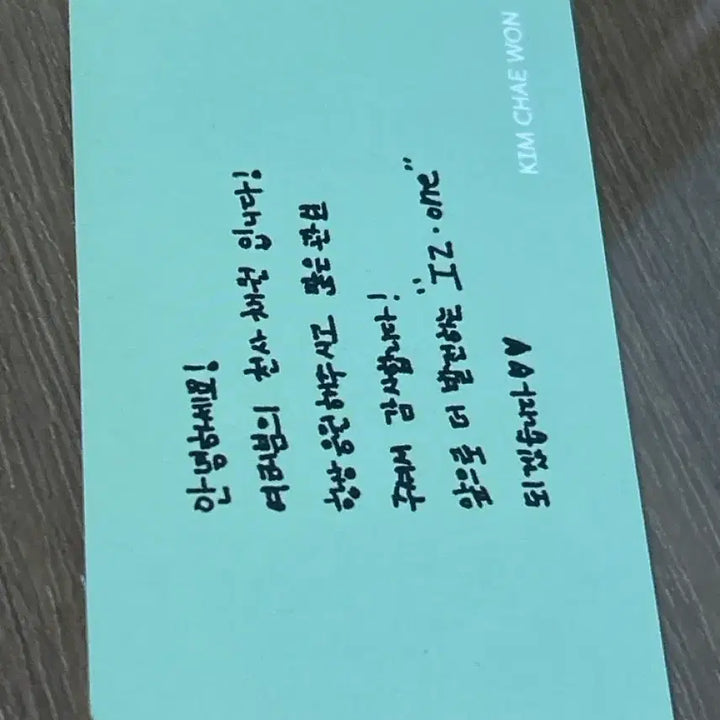 안녕하세요!
여러분의 천사 채원 입니다!
항상 응원해주시고 많은 관심
주셔서 감사합니다!
앞으로 더 발전하는 "IZ·one"
되겠습니다♥♥
KIM CHAE WON